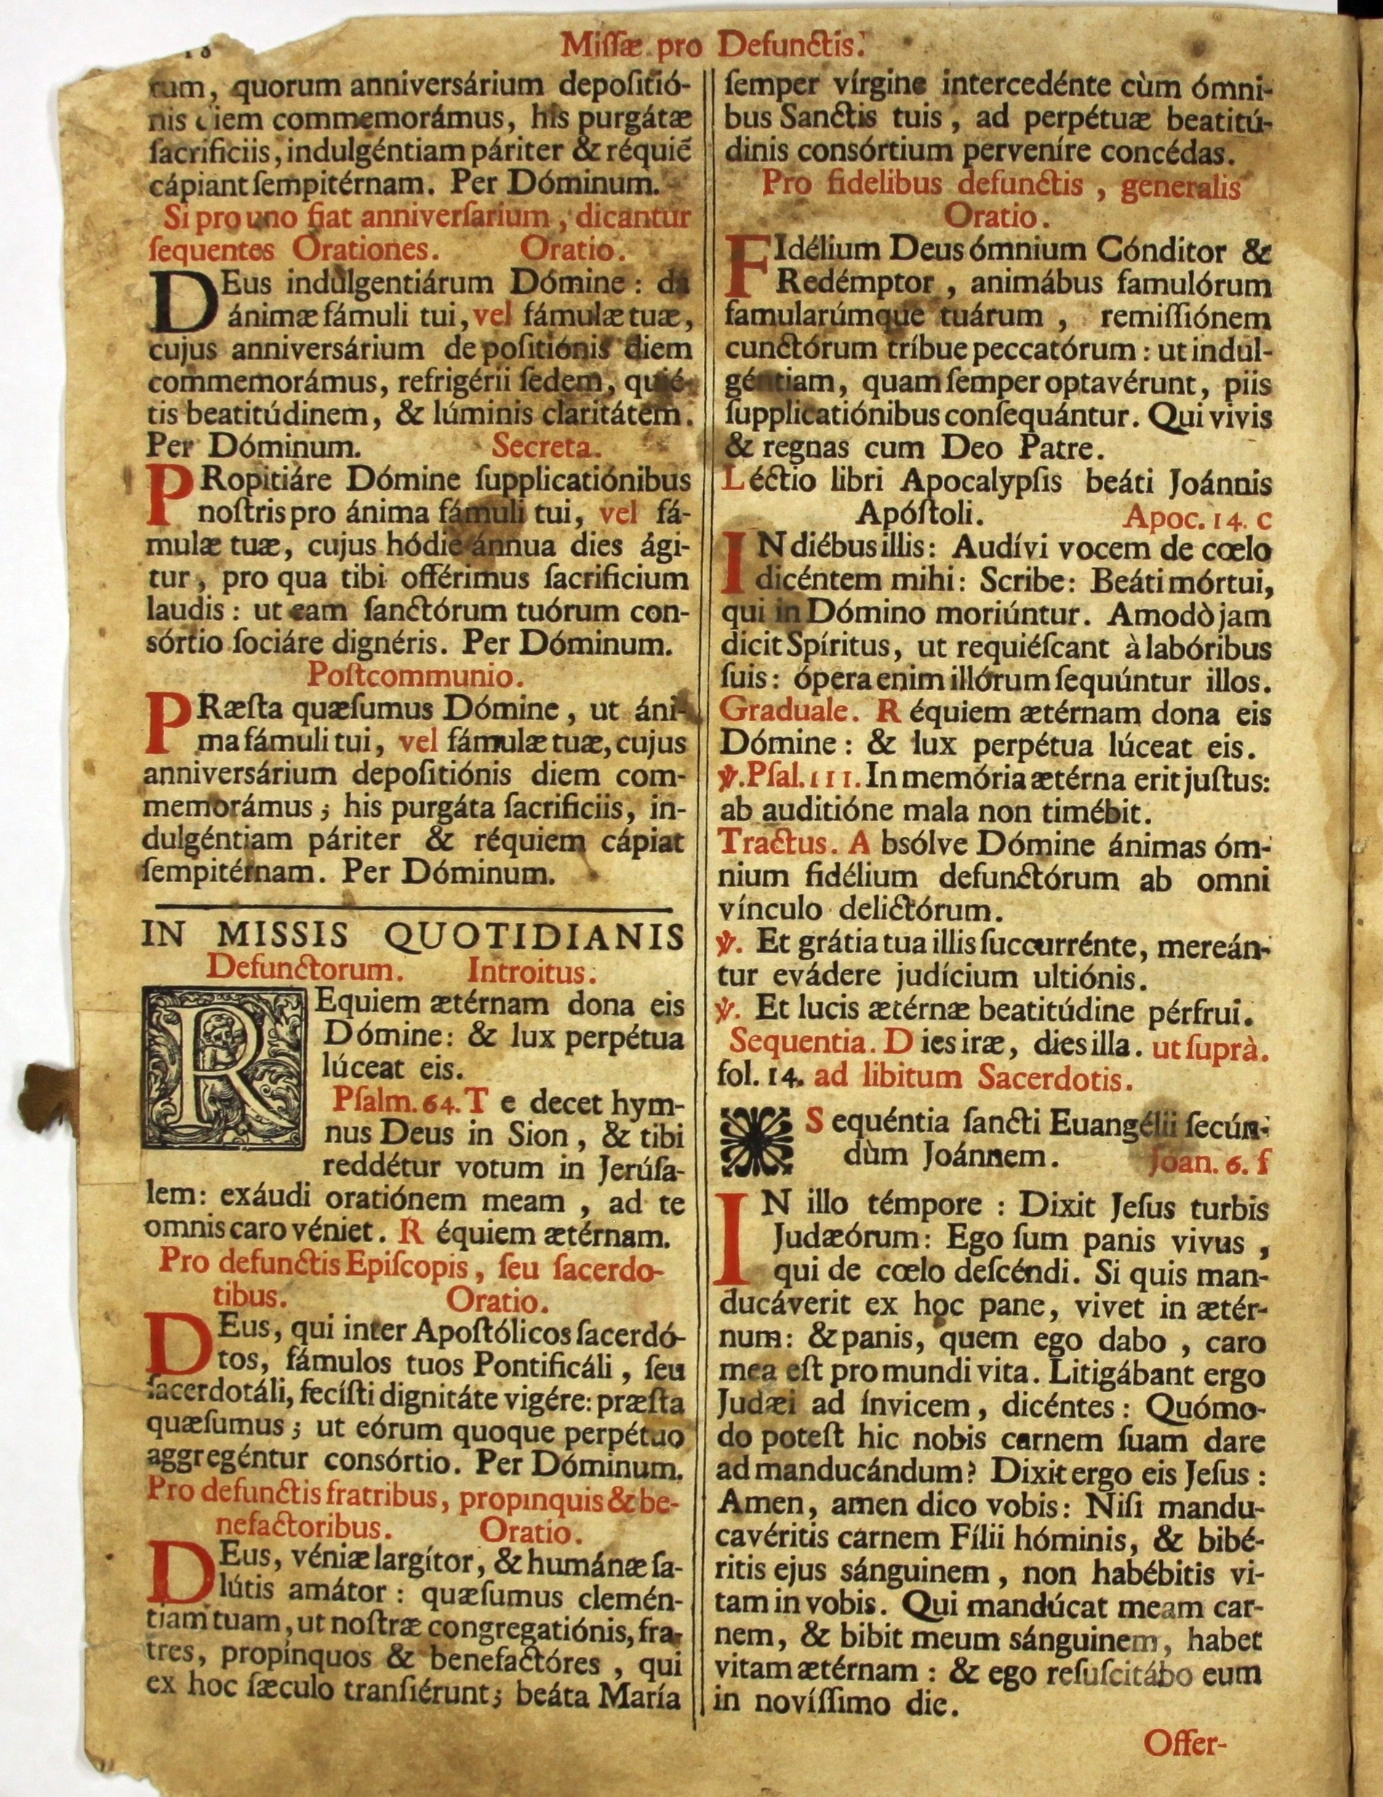 18
Missæ pro Defunctis.
rum, quorum anniversárium depoſitió-
nis diem commemorámus, his purgátæ
ſacrificiis, indulgéntiam páriter & réquiē
cápiant ſempitérnam. Per Dóminum.
Si pro uno fiat anniverſarium, dicantur
ſequentes Orationes. Oratio.
DEus indùlgentiárum Dómine: da
ánimæ fámuli tui, vel fámulæ tuæ,
cujus anniversárium depoſitiónis diem
commemorámus, refrigérii ſedem, quié-
tis beatitúdinem, & lúminis claritátem.
Per Dóminum. Secreta.
PRopitiáre Dómine ſupplicatiónibus
noſtris pro ánima fámuli tui, vel fá-
mulæ tuæ, cujus hódie ánnua dies ági-
tur, pro qua tibi offérimus ſacrificium
laudis: ut eam ſanctórum tuórum con-
sórtio ſociáre dignéris. Per Dóminum.
Poſtcommunio.
PRæſta quæſumus Dómine, ut áni-
ma fámuli tui, vel fámulæ tuæ, cujus
anniversárium depoſitiónis diem com-
memorámus; his purgáta ſacrificiis, in-
dulgéntiam páriter & réquiem cápiat
ſempitérnam. Per Dóminum.
IN MISSIS QUOTIDIANIS
Defunctorum. Introitus.
REquiem ætérnam dona eis
Dómine: & lux perpétua
lúceat eis.
Pſalm. 64. Te decet hym-
nus Deus in Sion, & tibi
reddétur votum in Jerúſa-
lem: exáudi oratiónem meam, ad te
omnis caro véniet. Réquiem ætérnam.
Pro defunctis Epiſcopis, ſeu ſacerdo-
tibus. Oratio.
DEus, qui inter Apoſtólicos ſacerdó-
tos, fámulos tuos Pontificáli, ſeu
ſacerdotáli, fecíſti dignitáte vigére: præſta
quæſumus; ut eórum quoque perpétuo
aggregéntur consórtio. Per Dóminum.
Pro defunctis fratribus, propinquis & be-
nefactoribus. Oratio.
DEus, véniæ largítor, & humánæ ſa-
lútis amátor: quæſumus clemén-
tiam tuam, ut noſtræ congregatiónis, fra-
tres, propínquos & benefactóres, qui
ex hoc ſæculo tranſiérunt; beáta María
ſemper vírgine intercedénte cùm ómni-
bus Sanctis tuis, ad perpétuæ beatitú-
dinis consórtium perveníre concédas.
Pro fidelibus defunctis, generalis
Oratio.
FIdélium Deus ómnium Cónditor &
Redémptor, animábus famulórum
famularúmque tuárum, remiſſiónem
cunctórum tríbue peccatórum: ut indul-
géntiam, quam ſemper optavérunt, piis
ſupplicatiónibus conſequántur. Qui vivis
& regnas cum Deo Patre.
Léctio libri Apocalypſis beáti Joánnis
Apóſtoli. Apoc. 14. c
IN diébus illis: Audívi vocem de cœlo
dicéntem mihi: Scribe: Beáti mórtui,
qui in Dómino moriúntur. Amodò jam
dicit Spíritus, ut requiéſcant à labóribus
ſuis: ópera enim illórum ſequúntur illos.
Graduale. Réquiem ætérnam dona eis
Dómine: & lux perpétua lúceat eis.
℣. Pſal. 111. In memória ætérna erit juſtus:
ab auditióne mala non timébit.
Tractus. Absólve Dómine ánimas óm-
nium fidélium defunctórum ab omni
vínculo delictórum.
℣. Et grátia tua illis ſuccurrénte, mereán-
tur evádere judícium ultiónis.
℣. Et lucis ætérnæ beatitúdine pérfrui.
Sequentia. Dies iræ, dies illa. ut ſuprà.
fol. 14. ad libitum Sacerdotis.
Sequéntia ſancti Euangélii ſecún-
dùm Joánnem. Joan. 6. f
IN illo témpore: Dixit Jeſus turbis
Judæórum: Ego ſum panis vivus,
qui de cœlo deſcéndi. Si quis man-
ducáverit ex hoc pane, vivet in ætér-
num: & panis, quem ego dabo, caro
mea eſt pro mundi vita. Litigábant ergo
Judæi ad ínvicem, dicéntes: Quómo-
do poteſt hic nobis carnem ſuam dare
ad manducándum? Dixit ergo eis Jeſus:
Amen, amen dico vobis: Niſi mandu-
cavéritis carnem Fílii hóminis, & bibé-
ritis ejus sánguinem, non habébitis vi-
tam in vobis. Qui mandúcat meam car-
nem, & bibit meum sánguinem, habet
vitam ætérnam: & ego reſuſcitábo eum
in novíſſimo die.
Offer-